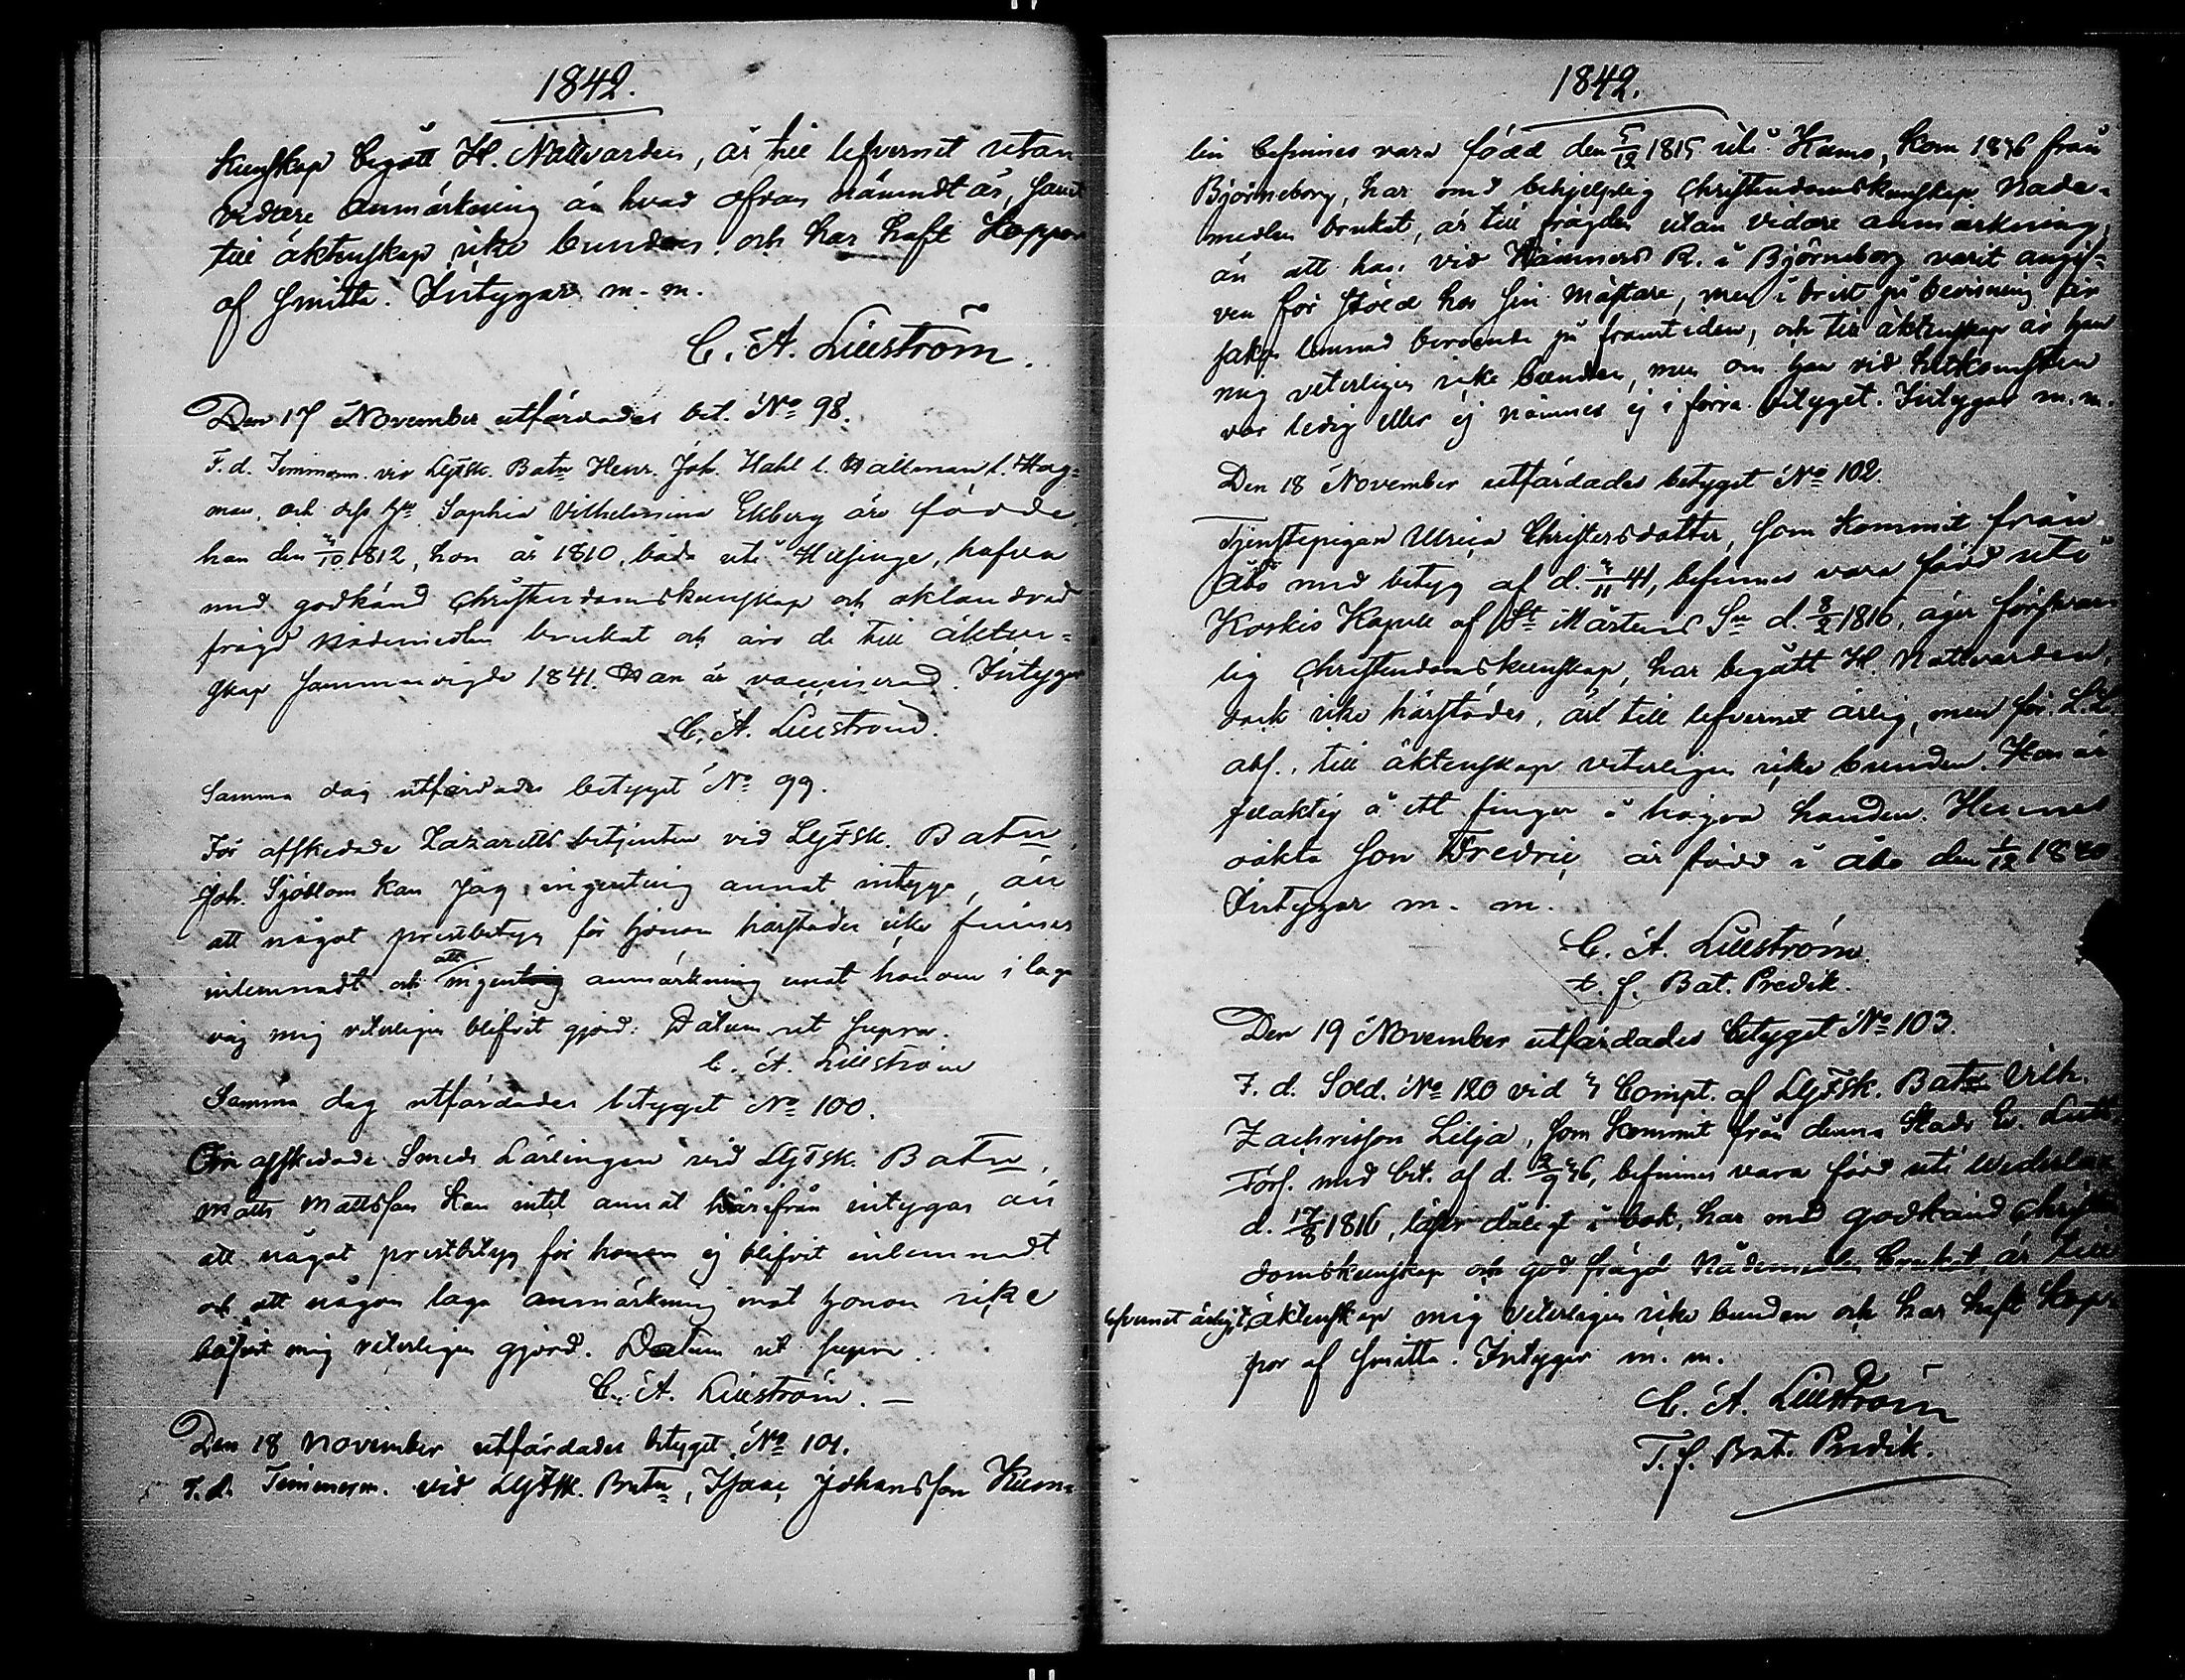 1842.
kunskap begått H. Nattvarden, är till lefvernet utan
vidare anmärkning än hvad ofvan nämndt är, samt
till äktenskap icke bunden och har haft Koppor
af smitta. Intygar m. m.
C. A. Lillström.
Den 17 November utfärdades bet. No 98.
F. d. Timmerm. vid LgFSk. Batn Henr. Joh. Hahl l. Hallman l. Hag-
man, och dess Hu Sophia Vilhelmina Ekberg äro födde
han den /10 1812, hon år 1810, båda uti Helsinge, hafva
med godkänd Christendomskunskap och oklandrad
frägd Nådemedlen brukat och äro de till äkten-
skap sammanvigde 1841. Han är vaccinerad. Intygar
C. A. Lillström.
Samma dag utfärdades betyget No 99.
För afskedade Lazaretts betjenten vid LgFSk. Batn
Joh. Sjöblom kan jag ingenting annat intyga, än
att något prestbetyg för honom härstädes icke finnes
inlemnadt och att ingen anmärkning emot honom i laga
väg mig veterligen blifvit gjord. Datum ut supra.
C. A. Lillström
Samma dag utfärdades betyget No 100.
Om afskedade Smeds Lärlingen vid LgFSk. Batn,
Matts Mattsson kan intet annat härifrån intygas än
att något prestbetyg för honom ej blifvit inlemnadt
och att någon laga anmärkning mot honom icke
blifvit mig veterligen gjord. Datum ut supra.
C. A. Lillström. —
Den 18 November utfärdades betyget No 101.
F. d. Timmerm. vid LgFSk. Batn, Isaac Johansson Kum-
1842.
lin befinnes vara född den 5/12 1815 uti Kumo, kom 1836 från
Björneborg, har med behjelplig Christendomskunskap Nåde-
medlen brukat, är till frägden utan vidare anmärkning,
än att han vid Kämners R. i Björneborg varit angif-
ven för stöld hos sin Mästare, men i brist på bevisning är
saken lemnad beroende på framtiden, och till äktenskap är han
mig veterligen icke bunden, men om han vid hitkomsten
var ledig eller ej nämnes ej i förra betyget. Intygar m. m.
Den 18 November utfärdades betyget No 102.
Tjenstepigan Ulrica Christersdotter, som kommit från
Åbo med betyg af d. /11 41, befinnes vara född uti
Koskis Kapell af St Mårtens Sn d. 8/2 1816, äger försvar-
lig Christendomskunskap, har begått H. Nattvarden,
dock icke härstädes, är till lefvernet ärlig, men för L. L.
abs., till äktenskap veterligen icke bunden. Hon är
felaktig å ett finger å högra handen. Hennes
oäkta son Fredric är född i Åbo den 1/12 1840
Intygar m. m.
C. A. Lillström.
t. f. Bat. Predik.
Den 19 November utfärdades betyget No 103.
F. d. Sold. No 120 vid 3 Compt. af LgFSk. Batn Vilh.
Zachrisson Lilja, som kommit från denna Stads Ev. Luth.
Förs. med bet. af d. /9 36, befinnes vara född uti Wederlax
d. 17/8 1816, läser dåligt i bok, har med godkänd Christen
domskunskap och god frägd Nådemedlen brukat, är till
lefvernet ärlig, t. äktenskap mig veterligen icke bunden och har haft Kop-
por af smitta. Intygar m. m.
C. A. Lillström
T. f. Bat. Predik.